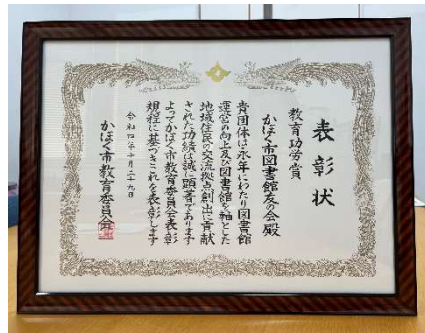 表彰状
教育功労賞
かほく市図書館友の会殿
貴団体は永年にわたり図書館
運営の向上及び図書館を軸とした
地域住民の交流拠点創出に貢献
された功績は誠に顕著であります
よってかほく市教育委員会表彰
規程に基づきこれを表彰します
令和四年十月二十九日
かほく市教育委員会